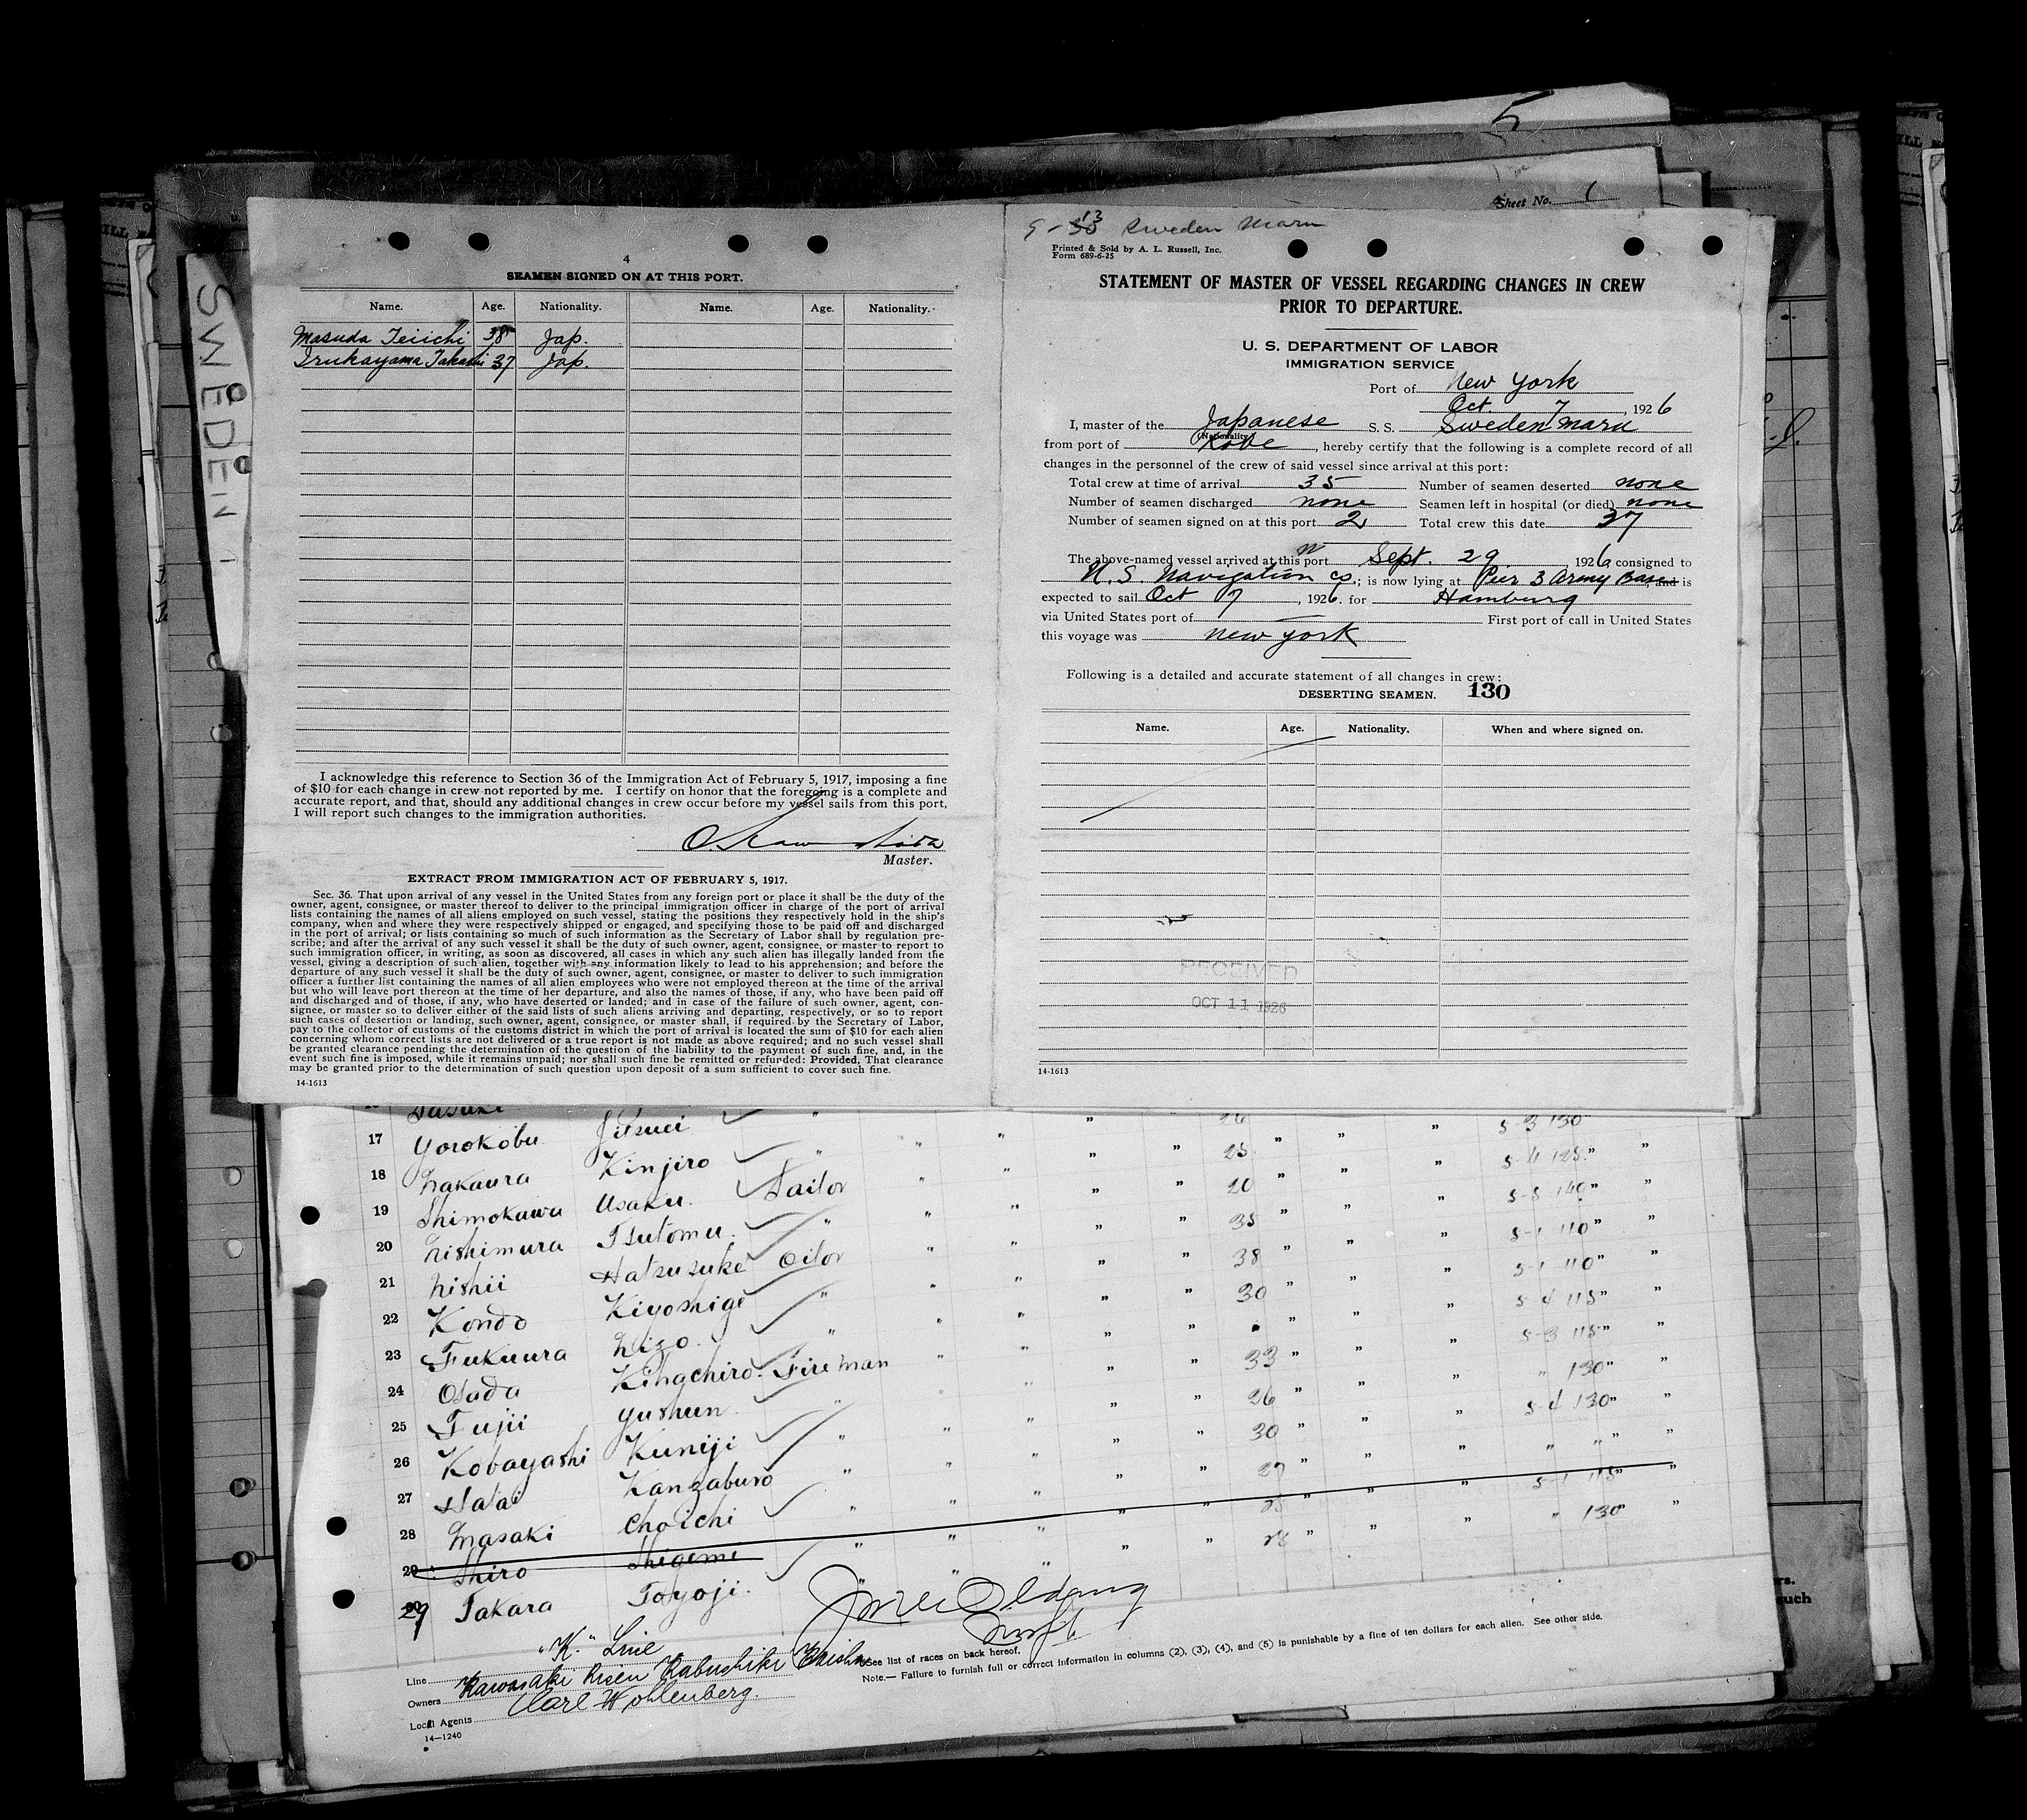 5
Sheet No. 1
SWEDEN
4
SEAMEN SIGNED ON AT THIS PORT.
Name. Age. Nationality. Name. Age. Nationality.
Masuda Teiichi 38 Jap.
Irukayama Takashi 37 Jap.
I acknowledge this reference to Section 36 of the Immigration Act of February 5, 1917, imposing a fine
of $10 for each change in crew not reported by me. I certify on honor that the foregoing is a complete and
accurate report, and that, should any additional changes in crew occur before my vessel sails from this port,
I will report such changes to the immigration authorities.
Master.
EXTRACT FROM IMMIGRATION ACT OF FEBRUARY 5, 1917.
Sec. 36. That upon arrival of any vessel in the United States from any foreign port or place it shall be the duty of the
owner, agent, consignee, or master thereof to deliver to the principal immigration officer in charge of the port of arrival
lists containing the names of all aliens employed on such vessel, stating the positions they respectively hold in the ship's
company, when and where they were respectively shipped or engaged, and specifying those to be paid off and discharged
in the port of arrival; or lists containing so much of such information as the Secretary of Labor shall by regulation pre-
scribe; and after the arrival of any such vessel it shall be the duty of such owner, agent, consignee, or master to report to
such immigration officer, in writing, as soon as discovered, all cases in which any such alien has illegally landed from the
vessel, giving a description of such alien, together with any information likely to lead to his apprehension; and before the
departure of any such vessel it shall be the duty of such owner, agent, consignee, or master to deliver to such immigration
officer a further list containing the names of all alien employees who were not employed thereon at the time of the arrival
but who will leave port thereon at the time of her departure, and also the names of those, if any, who have been paid off
and discharged and of those, if any, who have deserted or landed; and in case of the failure of such owner, agent, con-
signee, or master so to deliver either of the said lists of such aliens arriving and departing, respectively, or so to report
such cases of desertion or landing, such owner, agent, consignee, or master shall, if required by the Secretary of Labor,
pay to the collector of customs of the customs district in which the port of arrival is located the sum of $10 for each alien
concerning whom correct lists are not delivered or a true report is not made as above required; and no such vessel shall
be granted clearance pending the determination of the question of the liability to the payment of such fine, and, in the
event such fine is imposed, while it remains unpaid; nor shall such fine be remitted or refunded: Provided, That clearance
may be granted prior to the determination of such question upon deposit of a sum sufficient to cover such fine.
14-1613
13 Sweden Maru
Printed & Sold by A. L. Russell, Inc.
Form 689-6-25
STATEMENT OF MASTER OF VESSEL REGARDING CHANGES IN CREW
PRIOR TO DEPARTURE.
U. S. DEPARTMENT OF LABOR
IMMIGRATION SERVICE
Port of New York
Oct. 7, 1926
I, master of the Japanese S. S. Sweden Maru
(Nationality)
from port of Kobe, hereby certify that the following is a complete record of all
changes in the personnel of the crew of said vessel since arrival at this port:
Total crew at time of arrival 35 Number of seamen deserted none
Number of seamen discharged none Seamen left in hospital (or died) none
Number of seamen signed on at this port 2 Total crew this date 37
The above-named vessel arrived at this port Sept. 29 1926 consigned to
U.S. Navigation Co.; is now lying at Pier 3 Army Base and is
expected to sail Oct 7, 1926. for Hamburg
via United States port of First port of call in United States
this voyage was New York
Following is a detailed and accurate statement of all changes in crew:
DESERTING SEAMEN. 130
Name. Age. Nationality. When and where signed on.
RECEIVED
OCT 11 1926
14-1613
Sasaki
17 Yorokobu Jitsuei " " " " " 26 " " " 5-3 130 "
18 Nakaura Kinjiro " " " " 25 " " " 5-4 125 " "
19 Shimokawa Usaku. Sailor " " " " 20 " " " 5-5 140 " "
20 Nishimura Tsutomu. " " " " " 35 " " " 5-1 110 " "
21 Nishii Hatsusuke Oilor " " " " 38 " " " 5-1 110 " "
22 Kondo Kiyoshige " " " " " 30 " " " 5-4 115 " "
23 Fukuura Nizo. " " " " " " " " 5-3 115 " "
24 Osada Kihachiro. Fireman " " " " 33 " " " " 130 " "
25 Fujii Yushun " " " " " 26 " " " 5-4 130 " "
26 Kobayashi Kuniji " " " " " 30 " " " " " " "
27 Hatai Kanzaburo " " " " " 27 " " " 5-1 115 " "
28 Masaki Choichi " " " " " 25 " " " " 130 " "
29 Shiro Shigemi " " " " " 28 " " "
29 Takara Toyoji. "
Line "K." Line
Owners Kawasaki Kisen Kabushiki Kaisha
Local Agents Carl Wohlenberg.
14—1240
See list of races on back hereof.
Note.—Failure to furnish full or correct information in columns (2), (3), (4), and (5) is punishable by a fine of ten dollars for each alien. See other side.